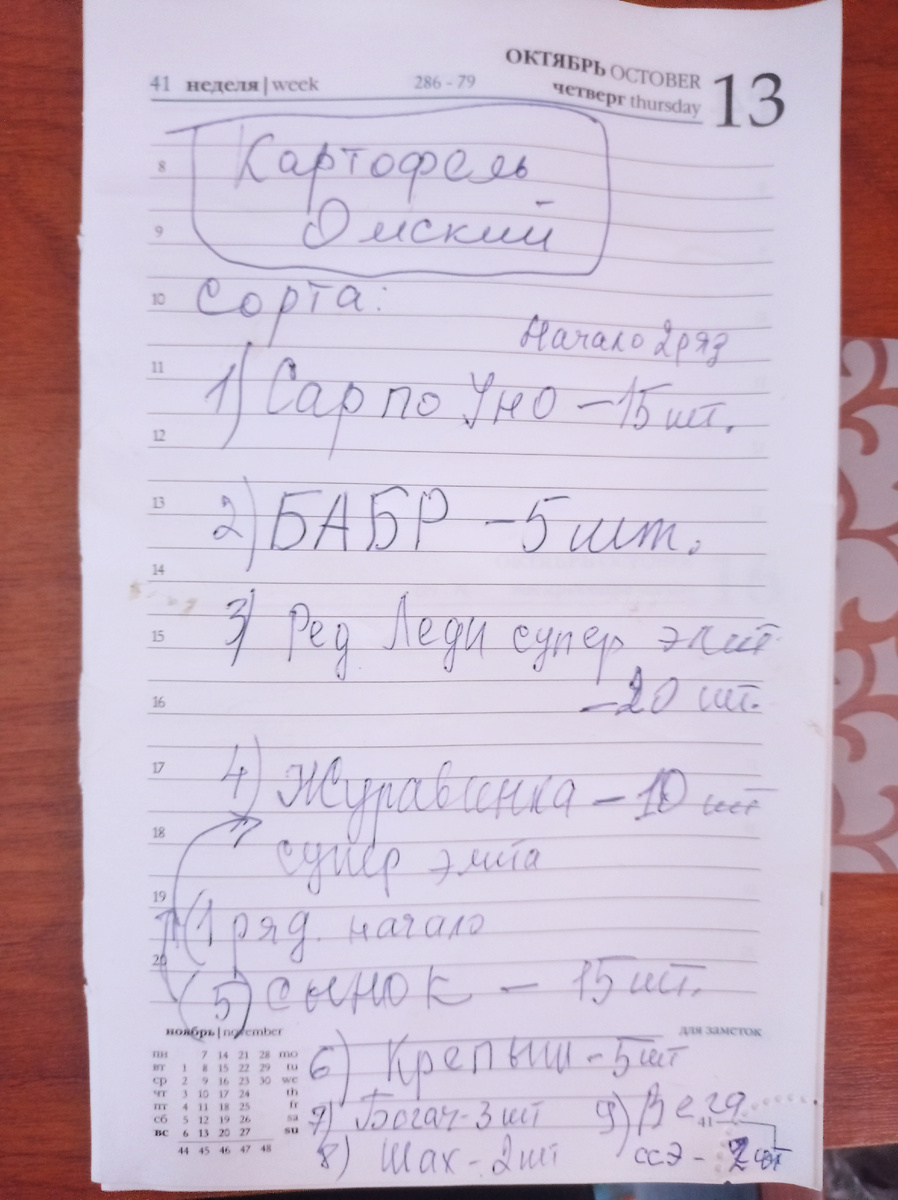 41 неделя | week 286 - 79 ОКТЯБРЬ OCTOBER
четверг thursday 13
8 Картофель
9 Омский
10 Сорта:
Начало 2 ряд
11 1) Сарпо Уно - 15 шт.
12
13 2) БАБР - 5 шт.
14
15 3) Ред Леди супер элит
16 - 20 шт.
17 4) Журавинка - 10 шт
18 супер элита
19 (1 ряд. начало
20 (5) сынок - 15 шт.
ноябрь | november для заметок
6) Крепыш - 5 шт
7) Богач - 3 шт 9) Вега
41
8) Шах - 2 шт ссэ - 2 шт
пн 7 14 21 28 mo
вт 1 8 15 22 29 tu
ср 2 9 16 23 30 we
чт 3 10 17 24 th
пт 4 11 18 25 fr
сб 5 12 19 26 sa
вс 6 13 20 27 su
44 45 46 47 48